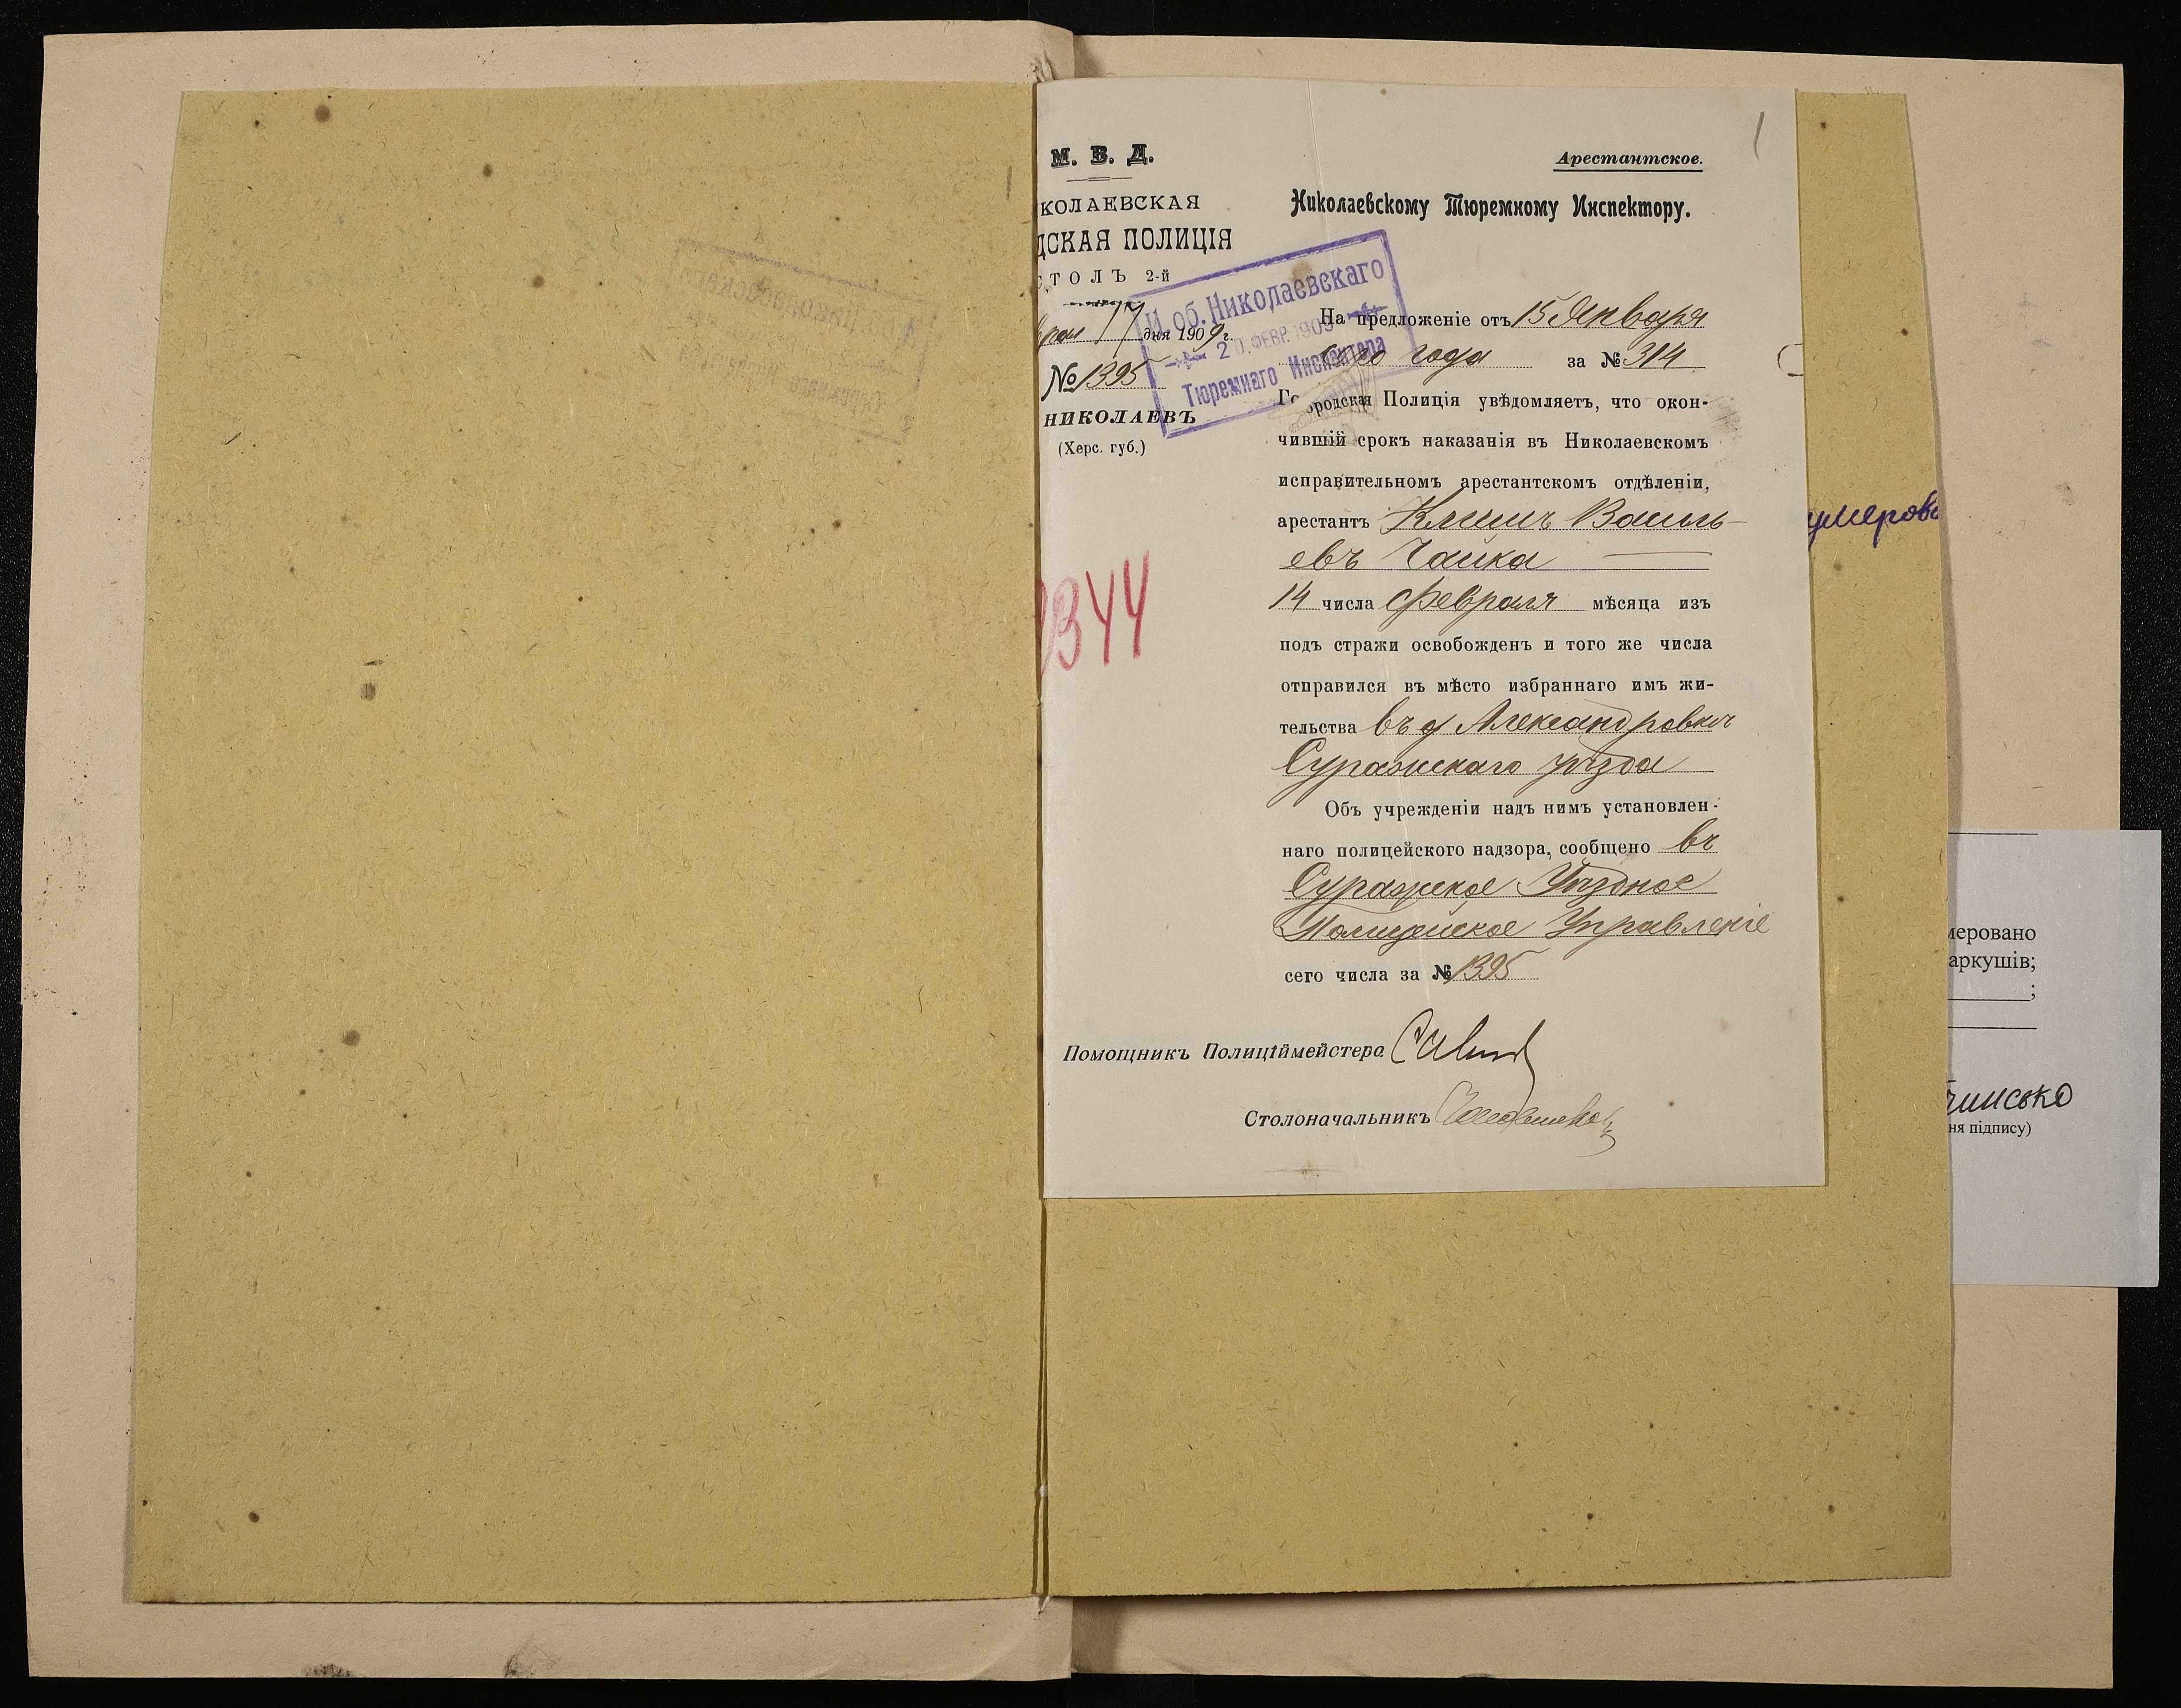 1
М. В. Д.
КОЛАЕВСКАЯ
ДСКАЯ ПОЛИЦІЯ
СТОЛЪ 2-й
17 дня 1909 г.
№ 1395
НИКОЛАЕВЪ
(Херс. губ.)
И. об. Николаевскаго
20. ФЕВР. 1909
Тюремнаго Инспектора
344
Арестантское.
Николаевскому Тюремному Инспектору.
На предложеніе отъ 15 Января
сего года за № 314
Городская Полиція увѣдомляетъ, что окон-
чившій срокъ наказанія въ Николаевскомъ
исправительномъ арестантскомъ отдѣленіи,
арестантъ Климъ Василь-
евъ Чайка
14 числа Февраля мѣсяца изъ
подъ стражи освобожденъ и того же числа
отправился въ мѣсто избраннаго имъ жи-
тельства въ д Александровку
Суражскаго уѣзда
Объ учрежденіи надъ нимъ установлен-
наго полицейскаго надзора, сообщено въ
Суражское Уѣздное
Полицейское Управленіе
сего числа за № 1395
Помощникъ Полиціймейстера
Столоначальникъ
умеров
меровано
аркушів;
;
ня підпису)